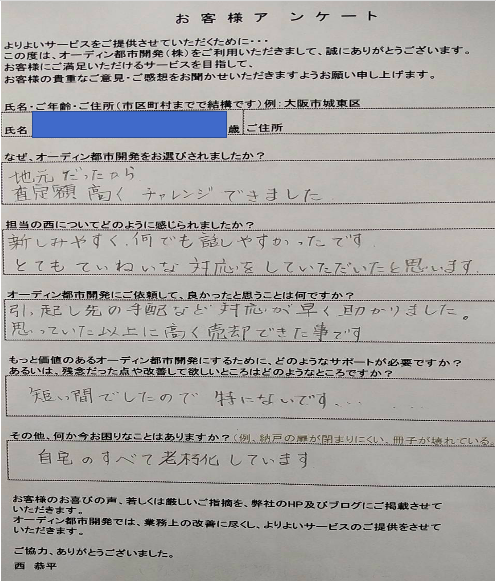 お客様アンケート
よりよいサービスをご提供させていただくために・・・
この度は、オーディン都市開発(株)をご利用いただきまして、誠にありがとうございます。
お客様にご満足いただけるサービスを目指して、
お客様の貴重なご意見・ご感想をお聞かせいただきますようお願い申し上げます。
氏名・ご年齢・ご住所(市区町村までで結構です)例:大阪市城東区
氏名 歳 ご住所
なぜ、オーディン都市開発をお選びされましたか?
地元だったから
査定額高くチャレンジできました
担当の西についてどのように感じられましたか?
新しみやすく、何でも話しやすかったです
とてもていねいな対応をしていただいたと思います
オーディン都市開発にご依頼して、良かったと思うことは何ですか?
引っ起し先の手配など対応が早く助かりました。
思っていた以上に高く売却できた事です
もっと価値のあるオーディン都市開発にするために、どのようなサポートが必要ですか?
あるいは、残念だった点や改善して欲しいところはどのようなところですか?
短い間でしたので特にないです...
その他、何か今お困りなことはありますか?(例、納戸の扉が閉まりにくい、冊子が壊れている。
自宅のすべて老朽化しています
お客様のお喜びの声、若しくは厳しいご指摘を、弊社のHP及びブログにご掲載させて
いただきます。
オーディン都市開発では、業務上の改善に尽くし、よりよいサービスのご提供をさせて
いただきます。
ご協力、ありがとうございました。
西 恭平